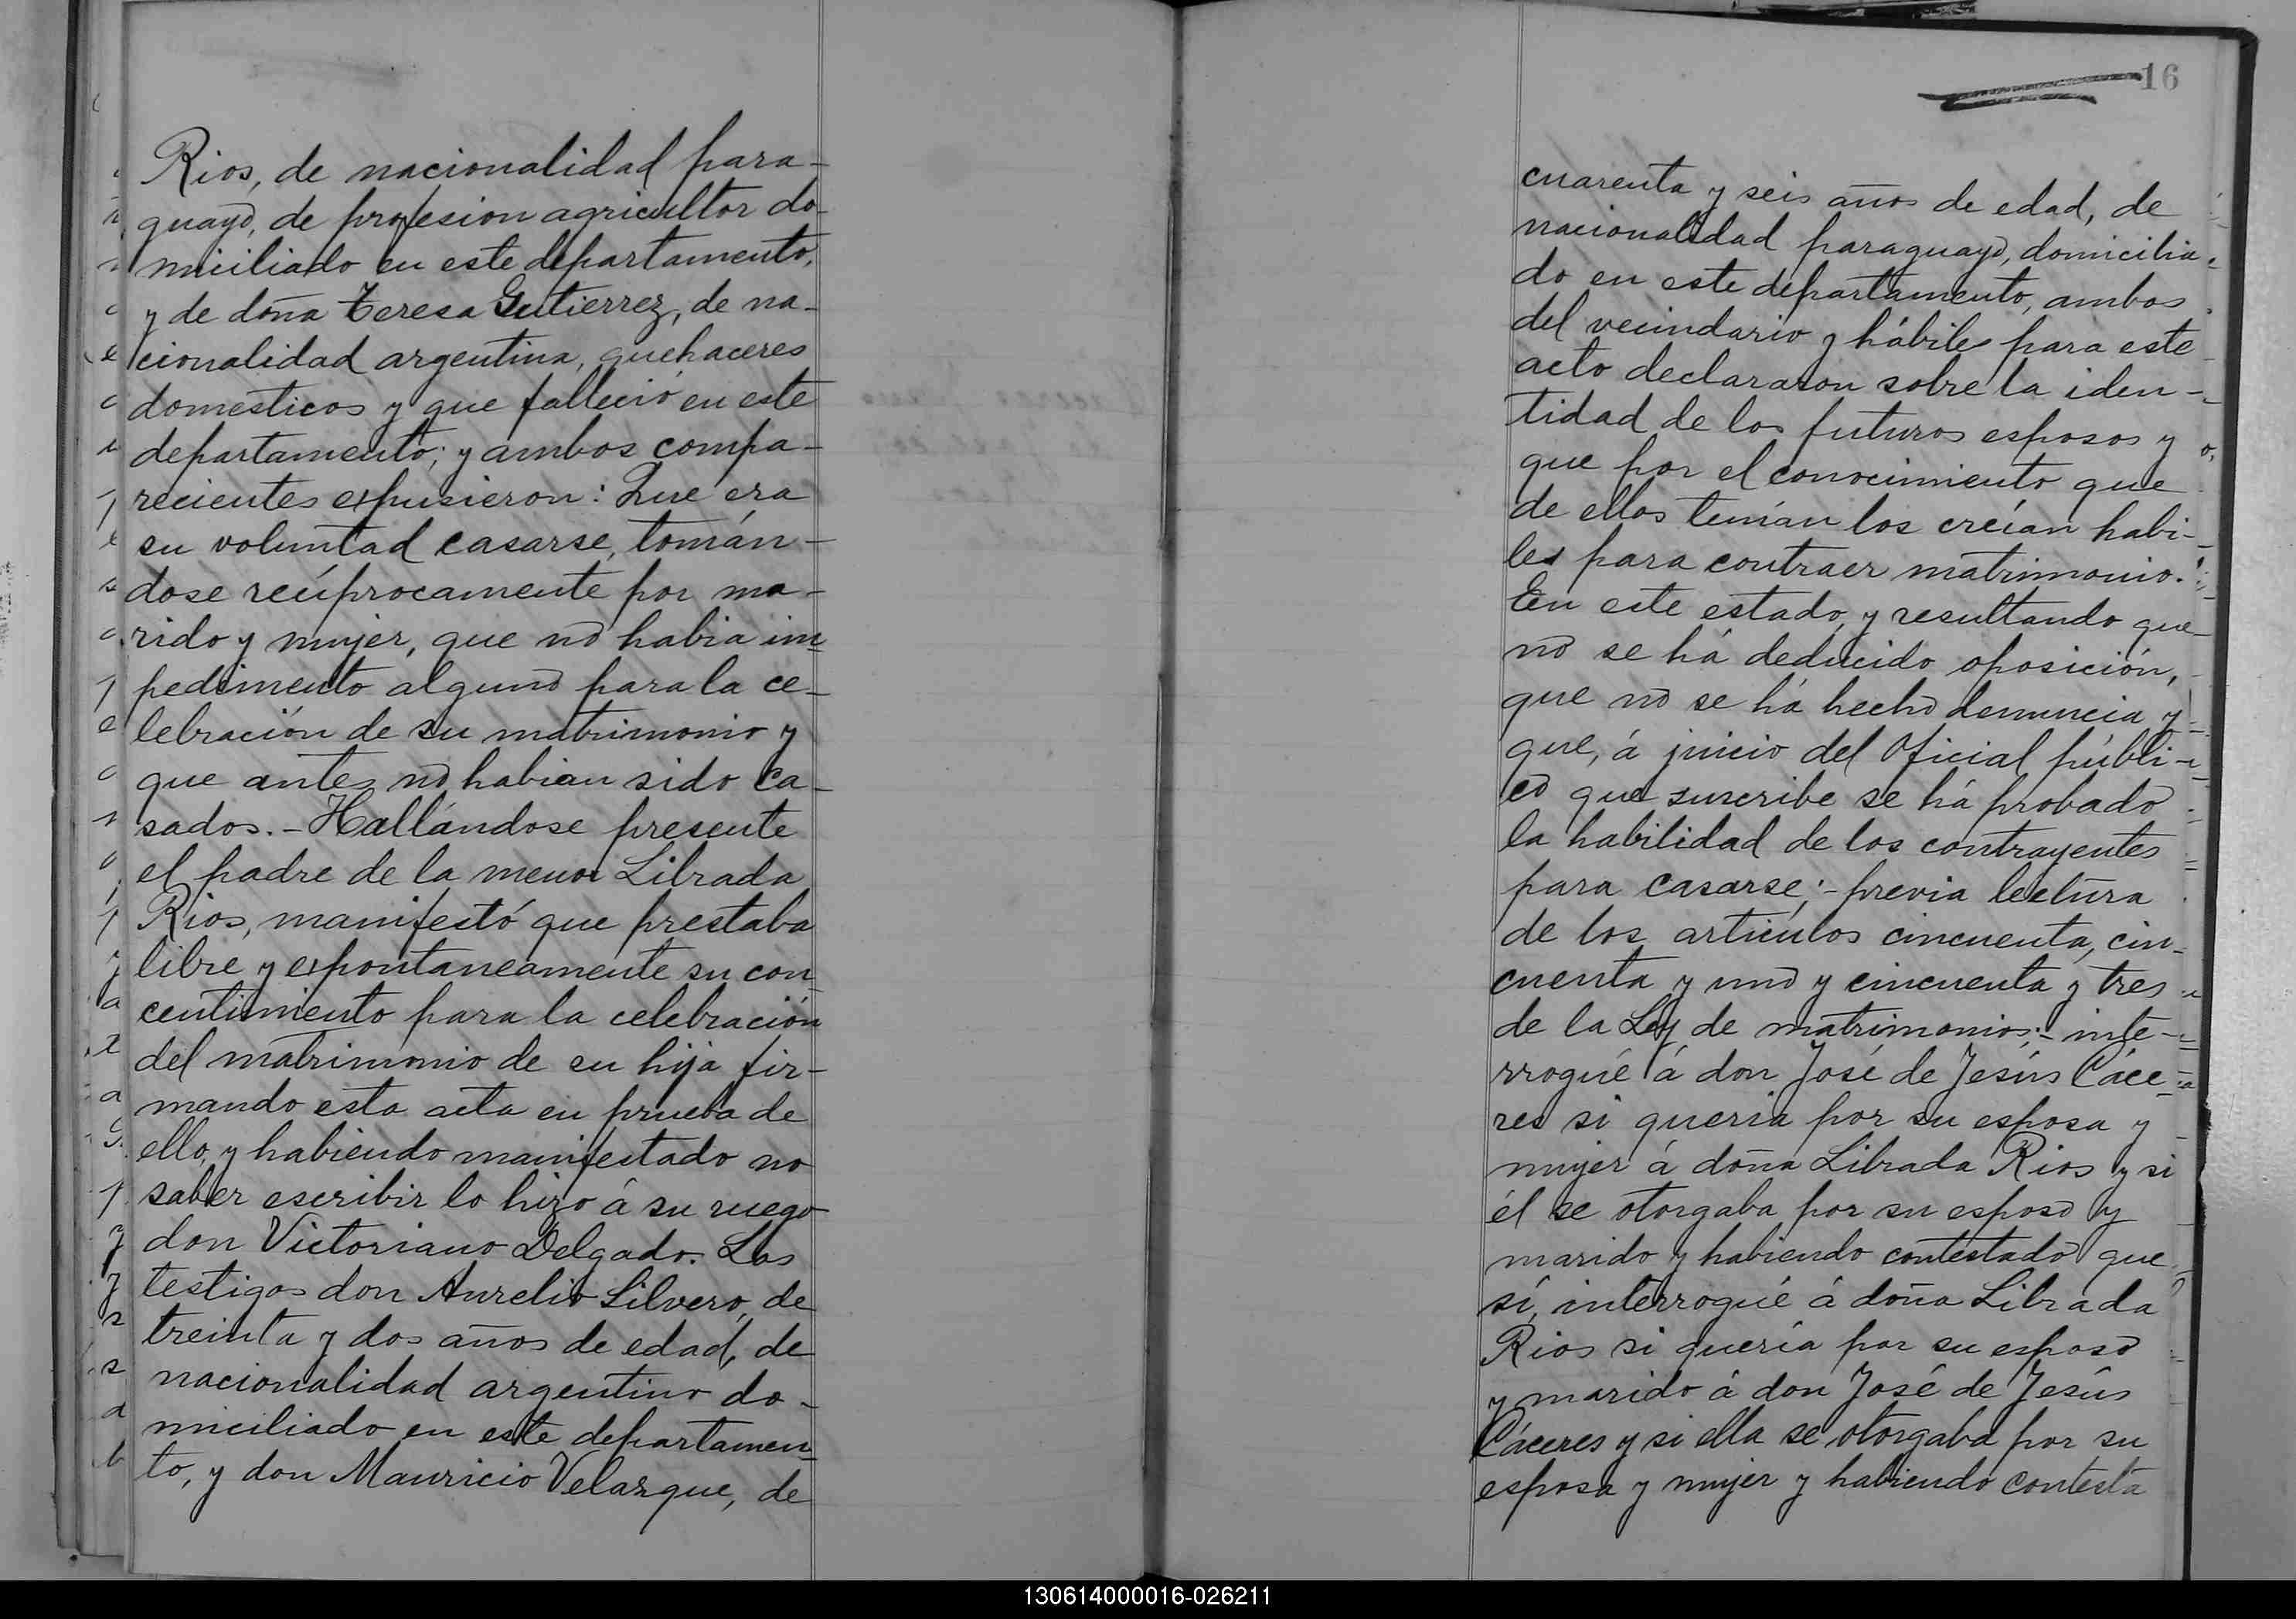 Rios, de nacionalidad para-
guayo, de profesion agricultor do-
miciliado en este departamento,
y de doña Teresa Gutierrez, de na-
cionalidad argentina, quehaceres
domesticos y que falleció en este
departamento; y ambos compa-
recientes expusieron: Que era
su voluntad casarse, tomán-
dose recíprocamente por ma-
rido y mujer, que no habia im-
pedimento alguno para la ce-
lebración de su matrimonio y
que antes no habian sido ca-
sados.- Hallándose presente
el padre de la menor Librada
Rios, manifestó que prestaba
libre y espontaneamente su con-
centimiento para la celebración
del matrimonio de su hija fir-
mando esta acta en prueba de
ello, y habiendo manifestado no
saber escribir lo hizo á su ruego
don Victoriano Delgado. Los
testigos don Aurelio Silvero, de
treinta y dos años de edad, de
nacionalidad argentino do-
miciliado en este departamen-
to, y don Mauricio Velazque, de
16
cuarenta y seis años de edad, de
nacionalidad paraguayo, domicilia-
do en este departamento, ambos
del vecindario y hábiles para este
acto declararon sobre la iden-
tidad de los futuros esposos y
que por el conocimiento que
de ellos tenían los creían habi-
les para contraer matrimonio.
En este estado, y resultando que
no se há deducido oposición,
que no se há hecho denuncia y
que, á juicio del Oficial públi-
co que suscribe se há probado
la habilidad de los contrayentes
para casarse;- previa lectura
de los artículos cincuenta, cin-
cuenta y uno y cincuenta y tres
de la Ley de matrimonios;- inte-
rrogué á don José de Jesús Cáce-
res si queria por su esposa y
mujer á doña Librada Rios y si
él se otorgaba por su esposo y
marido y habiendo contestado que
sí, interrogué á doña Librada
Rios si quería por su esposo
y marido á don José de Jesús
Cáceres y si ella se otorgaba por su
esposa y mujer y habiendo contesta
130614000016-026211